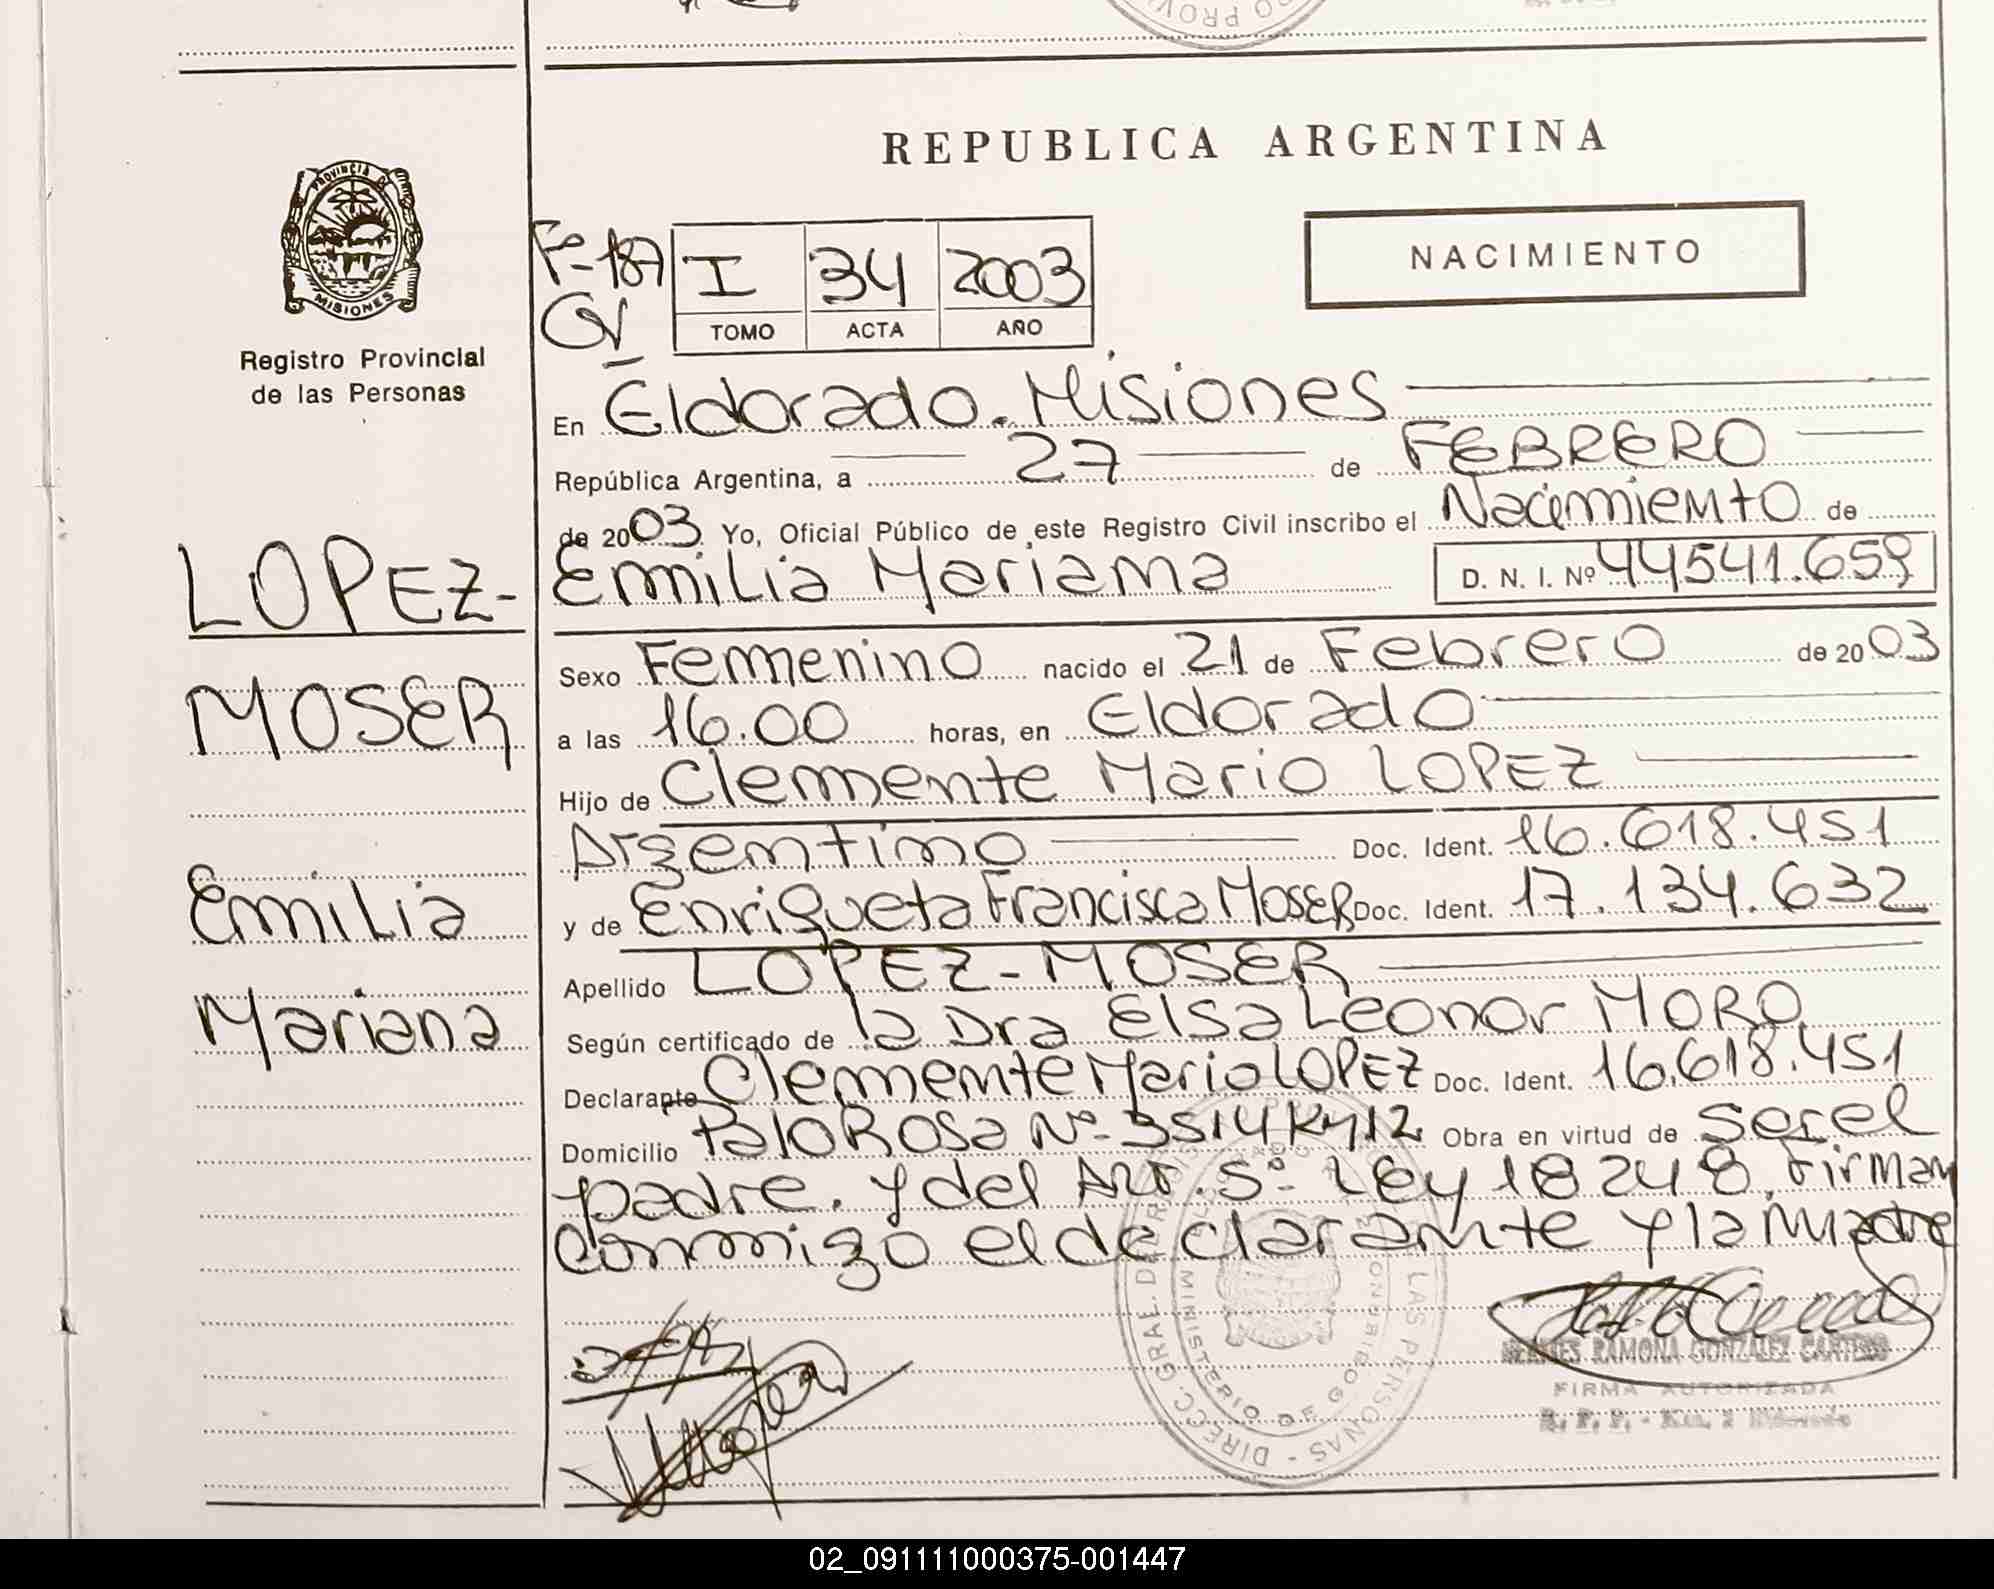 PROVINCIA DE
MISIONES
Registro Provincial
de las Personas
LOPEZ-
MOSER
Emilia
Mariana
REPUBLICA ARGENTINA
NACIMIENTO
Fº-187
I 34 2003
TOMO ACTA AÑO
En Eldorado. Misiones
República Argentina, a 27 de FEBRERO
de 2003 Yo, Oficial Público de este Registro Civil inscribo el Nacimiento de
Emilia Mariana D. N. I. Nº 44541.659
Sexo Femenino nacido el 21 de Febrero de 2003
a las 16.00 horas, en Eldorado
Hijo de Clemente Mario LOPEZ
Argentino Doc. Ident. 16.618.451
y de Enriqueta Francisca MOSER Doc. Ident. 17.134.632
Apellido LOPEZ-MOSER
Según certificado de la Dra Elsa Leonor MORO
Declarante Clemente Mario LOPEZ Doc. Ident. 16.618.451
Domicilio Palo Rosa Nº 3514 Km 12 Obra en virtud de ser el
padre. y del Art. 5º Ley 18248. Firman
conmigo el declarante y la Madre
RAMONA GONZALEZ
FIRMA AUTORIZADA
R. P. P. - Km. 2 Eldorado
DIRECC. GRAL. DEL REGISTRO LAS PERSONAS
MINISTERIO DE GOBIERNO
02_091111000375-001447